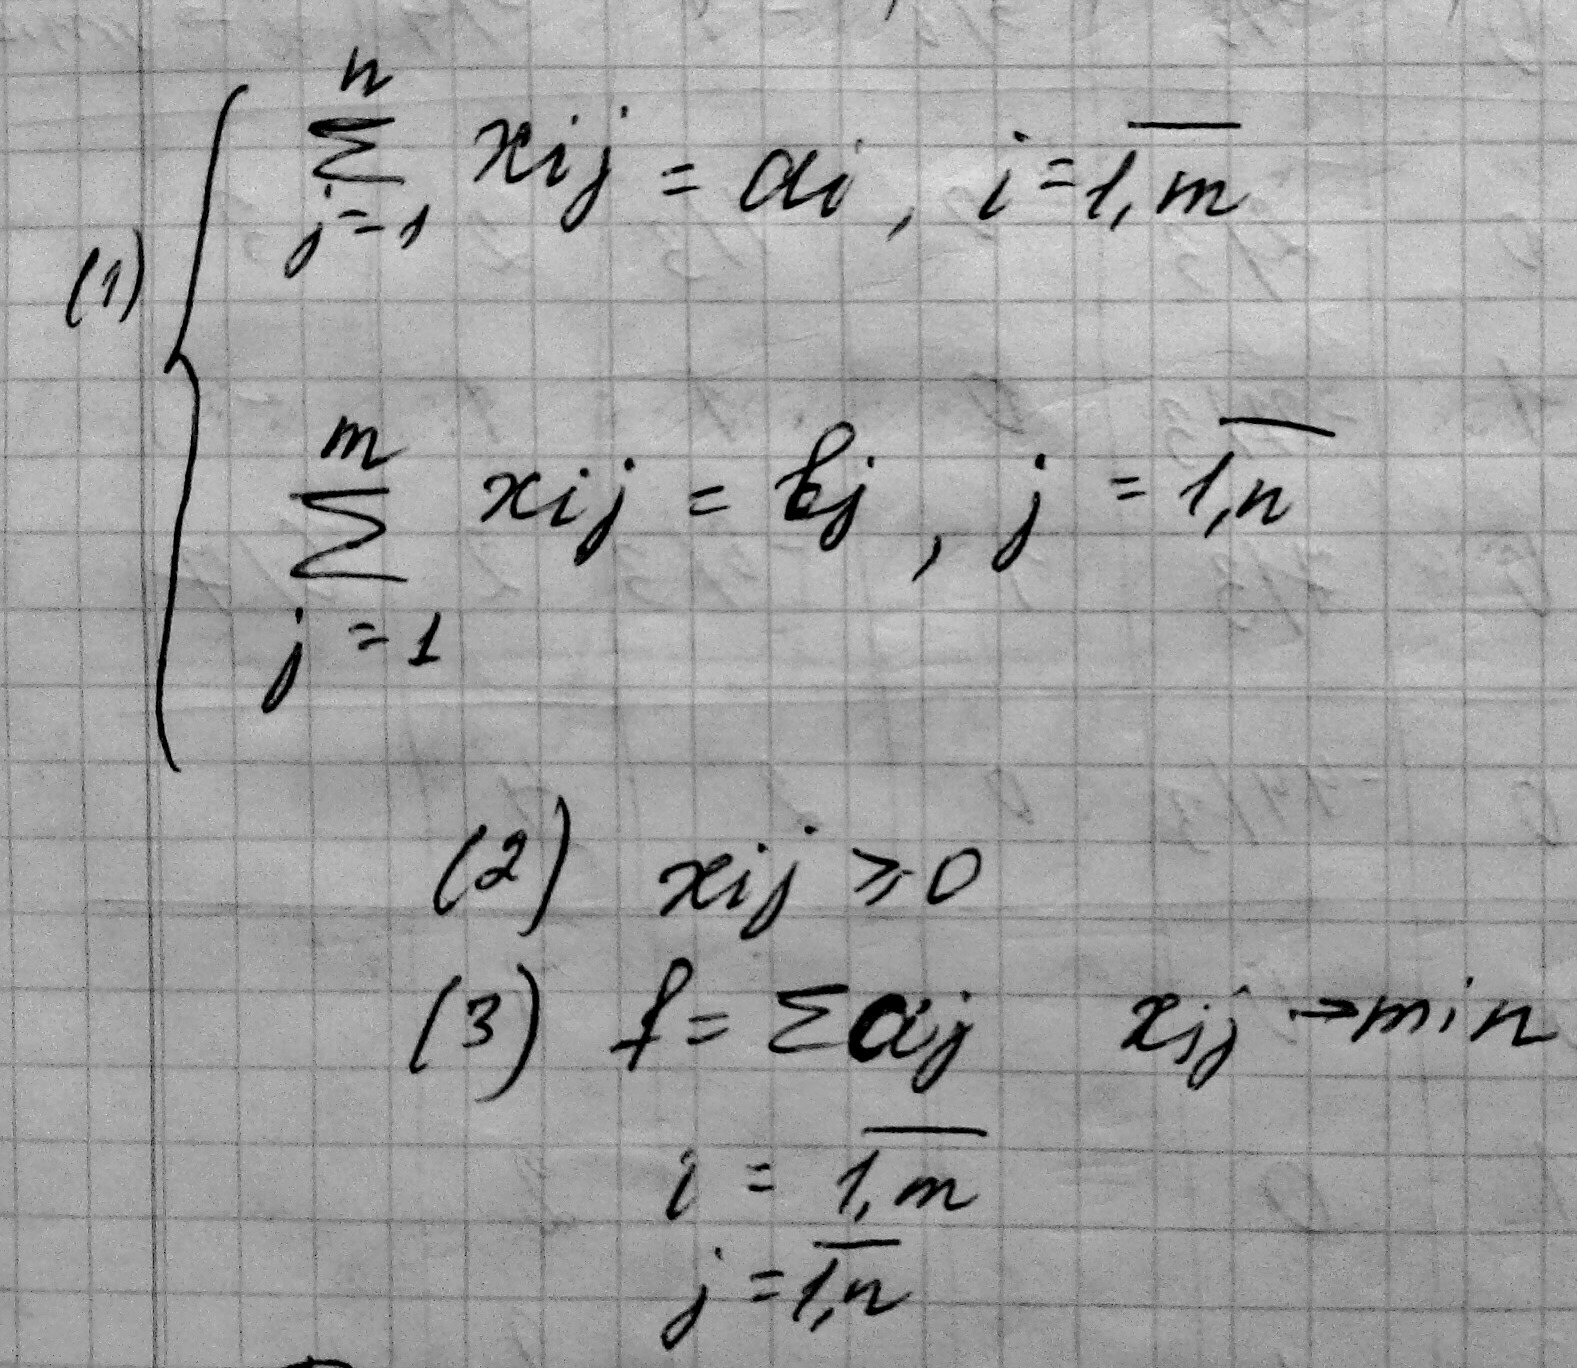 (1) { ∑_{j=1}^{n} x_{ij} = a_i , i = \overline{1,m}
∑_{j=1}^{m} x_{ij} = b_j , j = \overline{1,n}
(2) x_{ij} ⩾ 0
(3) f = ∑ a_{ij} x_{ij} → min
i = \overline{1,m}
j = \overline{1,n}